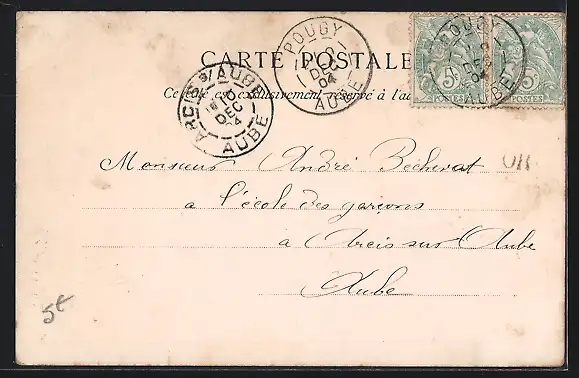 CARTE POSTALE
Ce côté est exclusivement réservé à l'ad
POUGY
DEC
04
AUBE
POUGY
AUBE
5c POSTES
5c POSTES
ARCIS S/AUBE
10
DEC
04
AUBE
Monsieur André Becherat
a l'école des garçons
à Arcis sur Aube
Aube
5€